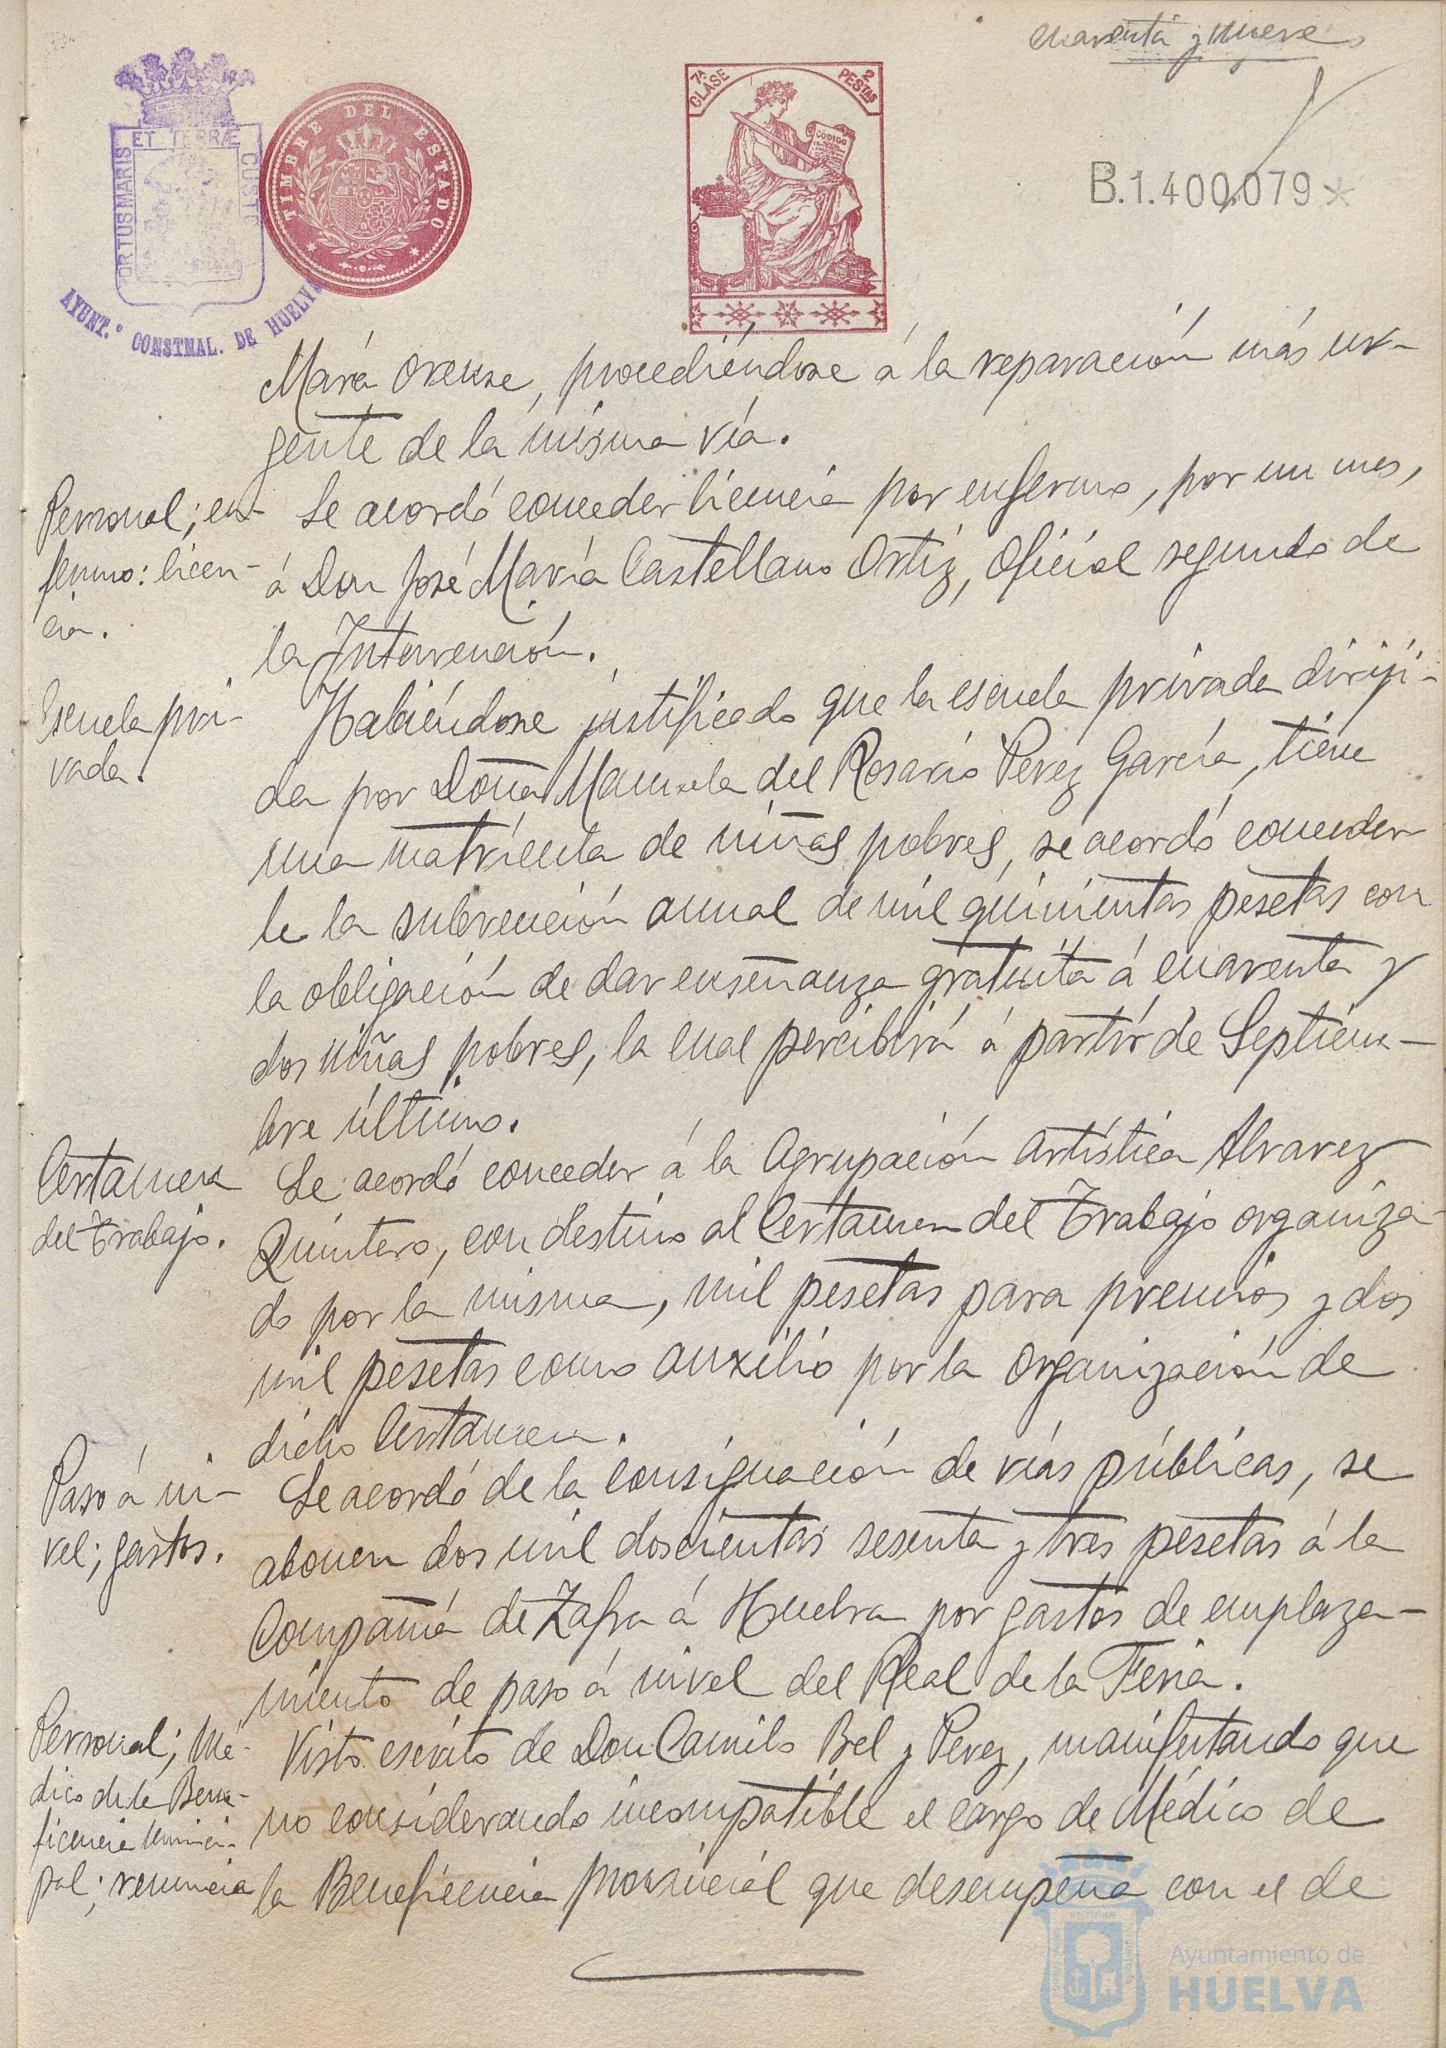 cuarenta y nueve
ET TERRÆ
PORTUS MARIS
CUSTO
AYUNT.º CONSTNAL. DE HUELVA
TIMBRE DEL ESTADO
7ª CLASE
2 PESTAS
CÓDIGO
B.1.400.079*
Mará Orense, procediéndose á la reparación más ur-
gente de la misma vía.
Personal; en-
fermo: licen-
cia.
Se acordó conceder licencia por enfermo, por un mes,
á Don José María Castellano Ortiz, Oficial segundo de
la Intervención.
Escuela pri-
vada.
Habiéndose justificado que la escuela privada dirigi-
da por Doña Manuela del Rosario Pérez García, tiene
una matrícula de niñas pobres, se acordó conceder
le la subvención anual de mil quinientas pesetas con
la obligación de dar enseñanza gratuita á cuarenta y
dos niñas pobres, la cual percibirá á partir de Septiem-
bre último.
Certamen
del Trabajo.
Se acordó conceder á la Agrupación Artística Alvarez
Quintero, con destino al Certamen del Trabajo organiza-
do por la misma, mil pesetas para premios y dos
mil pesetas como auxilio por la organización de
dicho Certamen.
Paso á ni-
vel; gastos.
Se acordó de la consignación de vías públicas, se
abonen dos mil doscientas sesenta y tres pesetas á la
Compañía de Zafra á Huelva por gastos de emplaza-
miento de paso á nivel del Real de la Feria.
Personal; Mé-
dico de la Bene-
ficencia Munici-
pal; renuncia
Visto escrito de Don Camilo Bel y Pérez, manifestando que
no considerando incompatible el cargo de Médico de
la Beneficencia provincial que desempeña con el de
Ayuntamiento de
HUELVA